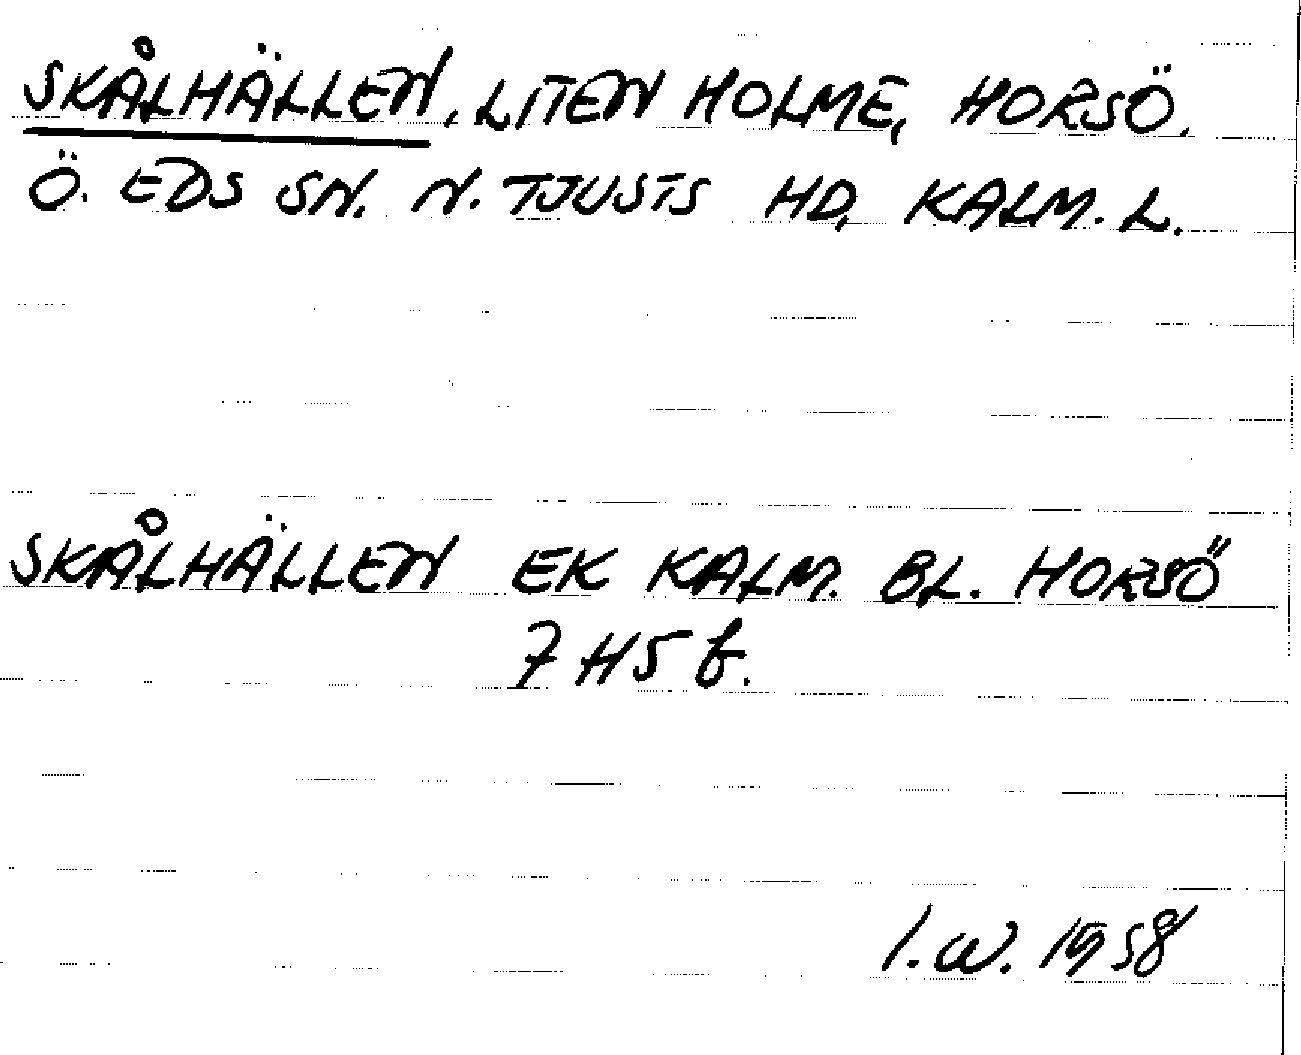 SKÅLHÄLLEN, LITEN HOLME, HORSÖ.
Ö. EDS SN. N. TJUSTS HD, KALM. L.
SKÅLHÄLLEN EK KALM. BL. HORSÖ
7 H5 f.
I.W. 1958